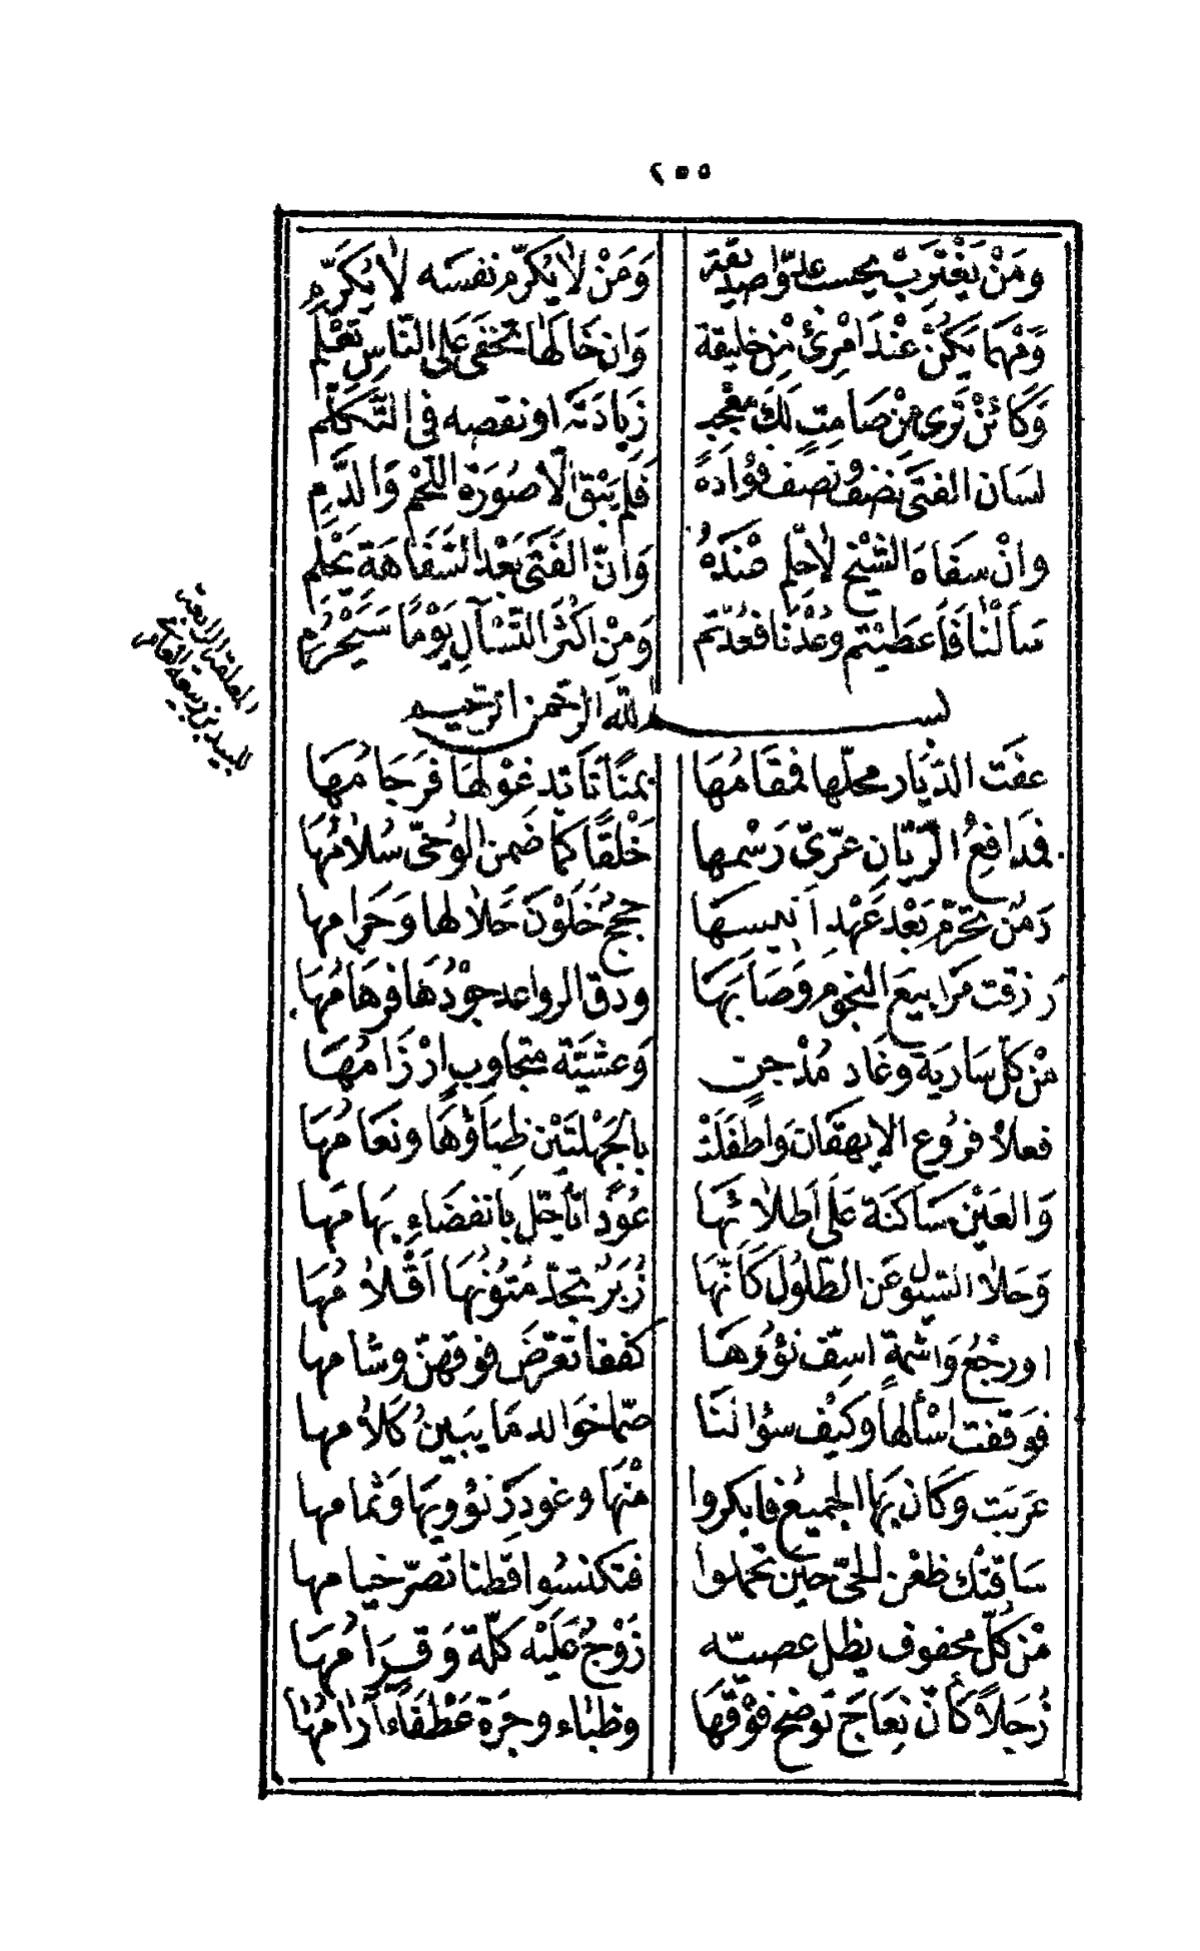 ٢٥٥
وَمَنْ يَغْتَرِبْ يحسب عدوّا صديقه وَمَنْ لَا يُكَرّم نفسَه لَا يُكَرَّمِ
وَمَهْمَا يَكُنْ عِنْدَ امْرِئٍ مِنْ خليقة وَان خَالَهَا تَخْفَى عَلَى النَّاسِ تُعْلَمِ
وَكَائنْ تَرى مِنْ صَامِتٍ لَكَ معْجبٍ زِيَادَتَه او نقصه فى التَّكَلّمِ
لسَان الفتَى نصْف ونصْف فؤَادهُ فَلَم يَبْقَ الّا صُورَة اللّحْمِ وَالدَّمِ
وانْ سَفَاهَ الشّيْخِ لَا حِلْم بَعْدَهُ وَانّ الفَتَى بَعْدَ السَّفَاهَة يَحْلُمِ
سَألْنَا فَأَعطَيْتم وعُدْنَا فعُدتم وَمن اكْثَرَ التَّسْآلِ يَوْمًا سَيُحْرَمِ
بســـم الله الرّحمن الرّحيم
المعلقة الرابعة
للبيد بن ربيعة العامرى
عفَت الدّيَار محلّها فمقَامُهَا بمنًا تَأَبّد غوْلهَا فرِجَامُهَا
فمدَافعُ الرّيّانِ عرّىَ رَسْمها خَلْقًا كما ضَمن الوُحىّ سُلَامُهَا
دمَنٌ تجرّم بَعْدَ عَهْدِ انيسهَا حججٌ خَلَوْنَ حَلَالها وَحَرامها
رزقت مَرَابيعَ النجُوم وَصَابَهَا ودق الرواعد جوْدُهَا فرهَامُهَا
منْ كلّ سَارية وغَاد مُدْجن وَعشيّة متجاوب ارْزَامُهَا
فعلَا فروُع الايهقَان وَاطفَلَتْ بالجَهْلتَيْن ظِبَاؤُهَا ونعَامُهَا
وَالعَيْن سَاكنَة عَلَى اَطلَائهَا عُوذًا تأجّل بالفضَاءِ بهَامهَا
وَجَلَا السّيول عَن الطّلُول كَأنّهَا زُبُرٌ تجدّ مُتُونُهَا اَقْلَامُهَا
اورجْعُ وَاشمةٍ اسفّ نؤوُرهَا كففا تعرّضَ فوقهنّ وشامها
فوَقفت اسْألهَا وكيْف سؤالنَا صمّا خوَالد مَا يَبينُ كَلَامها
عريَت وَكَان بهَا الجميعُ فابكروا منْهَا وغودرَ نؤويهَا وَثمامها
سَاقتْك ظعْن الحَىّ حيْن تحملوا فتكنسوا قطنا تصرّ خيامها
منْ كلّ محفوف يظل عصيّه زَوْجٌ عَلَيْه كلّة وَقرَامُهَا
زُجَلاً كَأنّ نعَاجَ تُوضح فوْقهَا وظباء وجرة عَطْفاً ارَامُهَا